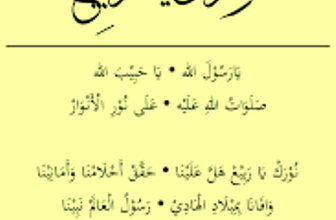 يَارَسُوْلَ الله • يَا حَبِيْبَ الله
صَلَوَاتُ اللهِ عَلَيْه • عَلَى نُوْرِ الْأَنْوَارْ
نُوْرُكْ يَا رَبِيْعْ هَلَّ عَلَيْنَا • حَقِّقْ أَحْلَامْنَا وَأَمَانِيْنَا
وَافَانَا بِمِيْلَادِ الْهَادِيْ • رَسُوْلُ الْعَالَمْ نَبِيْنَا